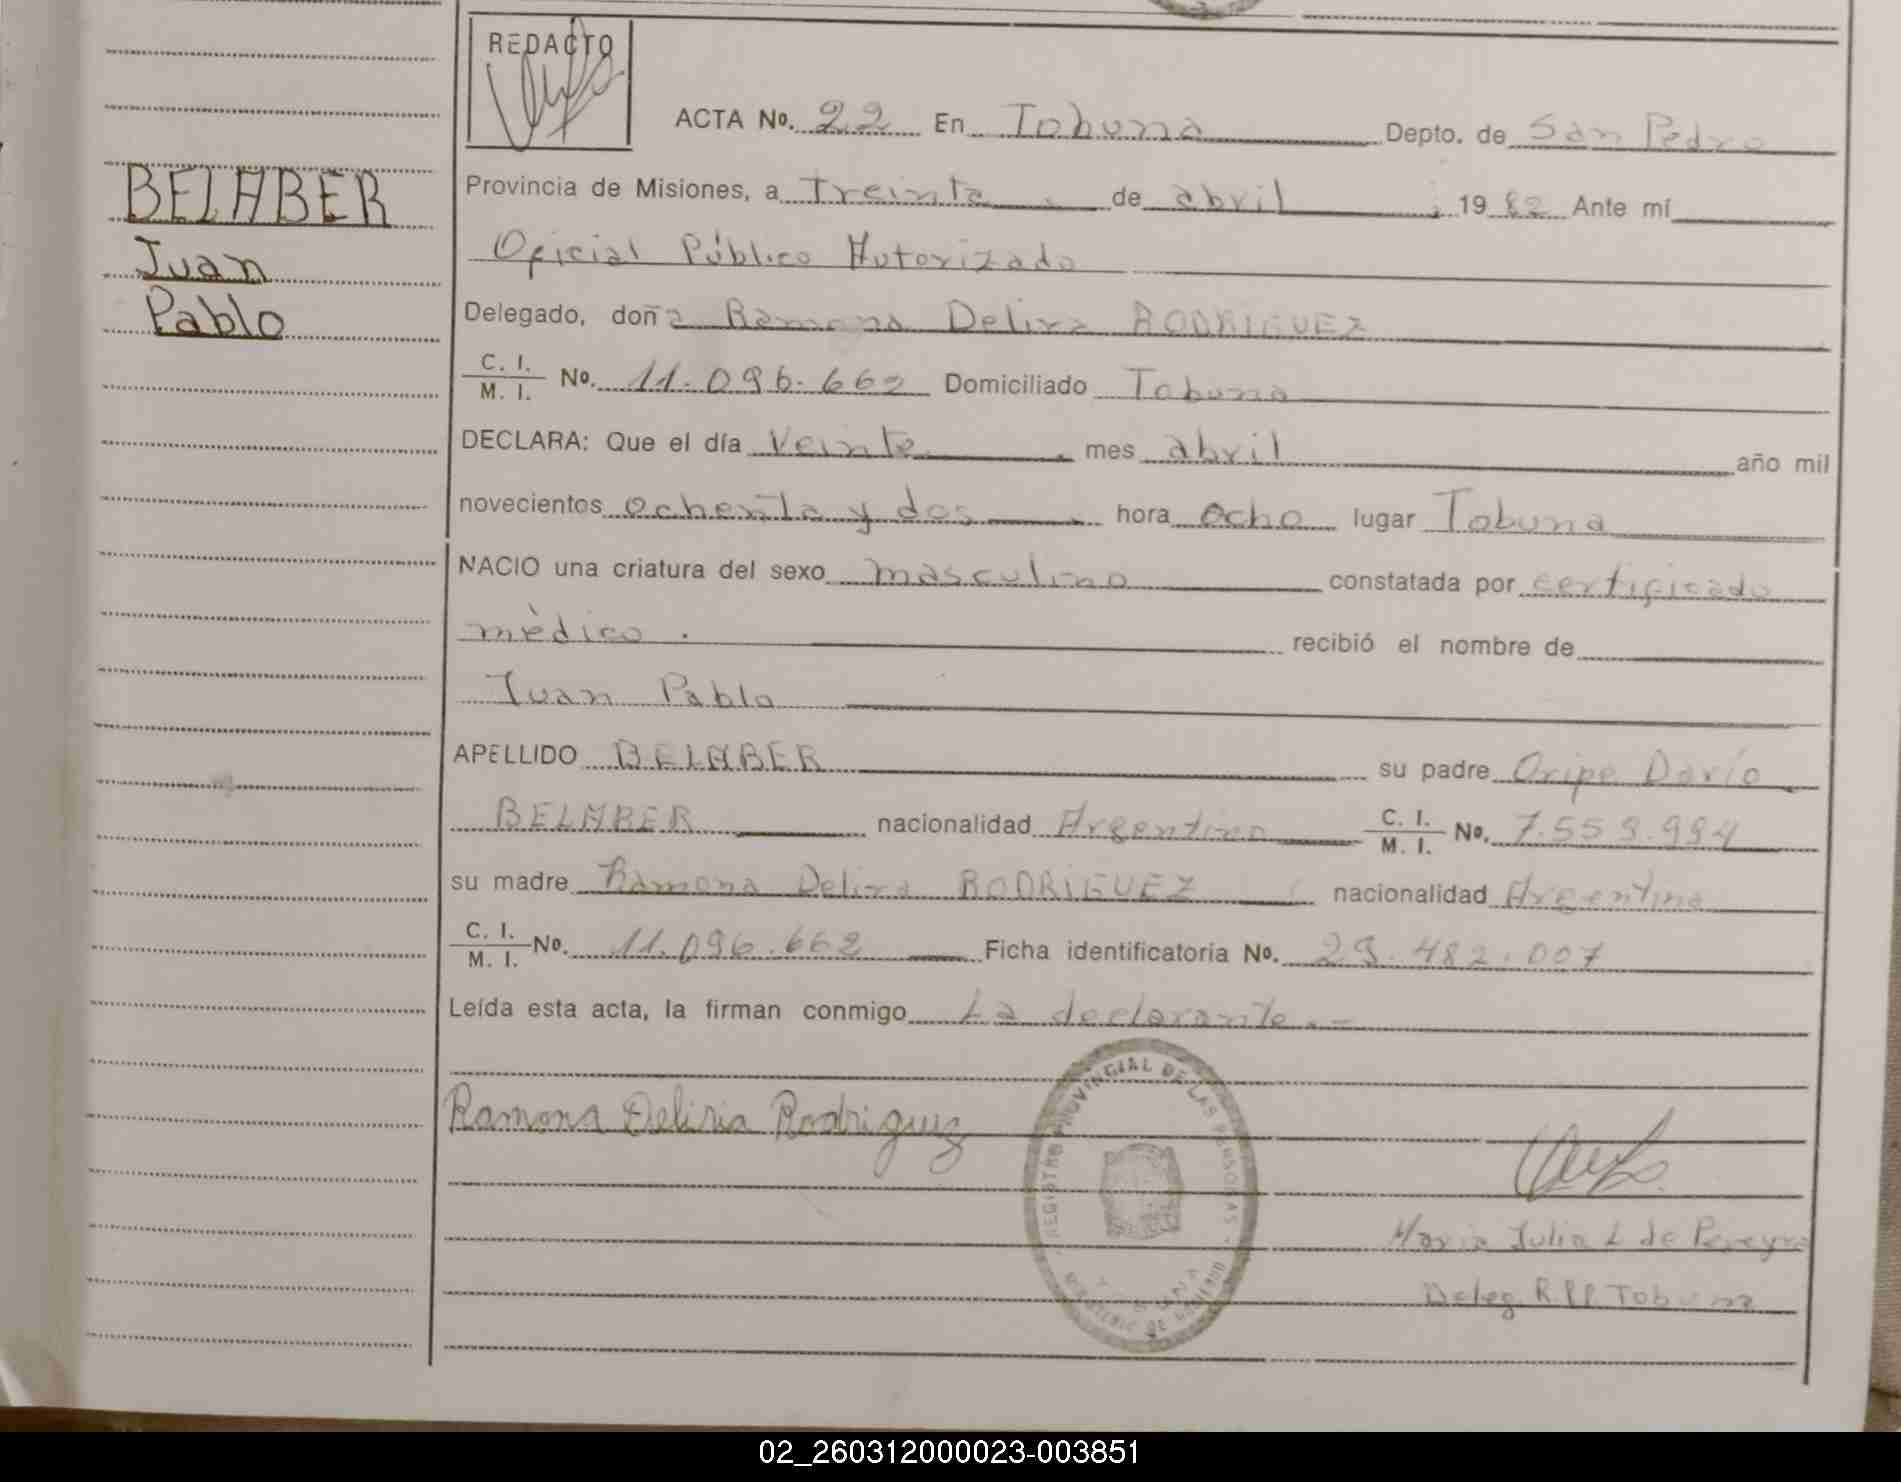 REDACTO
ACTA No. 22 En Tobuna Depto. de San Pedro
BELABER
Juan
Pablo
Provincia de Misiones, a Treinta de abril 1982 Ante mí
Oficial Público Autorizado
Delegado, doña Ramona Delira RODRIGUEZ
C. I. / M. I. No. 11.096.662 Domiciliado Tobuna
DECLARA: Que el día veinte mes abril año mil
novecientos ochenta y dos hora ocho lugar Tobuna
NACIO una criatura del sexo masculino constatada por certificado
mèdico. recibió el nombre de
Juan Pablo
APELLIDO BELABER su padre Oripe Darío
BELABER nacionalidad Argentino C. I. / M. I. No. 7.559.994
su madre Ramona Delira RODRIGUEZ nacionalidad Argentina
C. I. / M. I. No. 11.096.662 Ficha identificatoria No. 29.482.007
Leída esta acta, la firman conmigo La declarante.-
REGISTRO PROVINCIAL DE LAS PERSONAS
MINISTERIO DE GOBIERNO
Ramona Deliria Rodriguez
Maria Julia L de Pereyra
Deleg. R.P.P. Tobuna
02_260312000023-003851